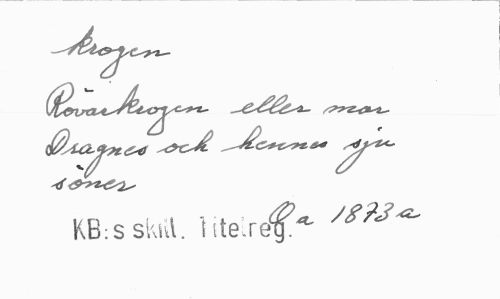 krogen
Rövarkrogen eller mor
Dragnes och hennes sju
söner
Qa 1873 a
KB:s skill. Titelreg.